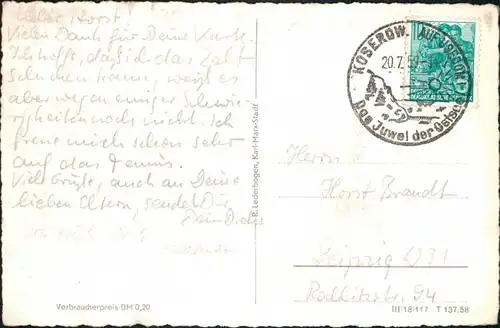 Lieber Horst.
Vielen Dank für Deine Karte.
Ich hoffe, daß ich das Zelt
nehmen kann, weiß es
aber wegen unser Schwie-
rigkeiten noch nicht. Ich
freue mich schon sehr
auf das
Viele Grüße, auch an Deine
lieben Eltern, sendet Dir
Dein
R. Lederbogen, Karl-Marx-Stadt
KOSEROW AUF USEDOM
20.7.59
Das Juwel der Ostsee
Herrn
Horst Brandt
Leipzig W31
94
Verbraucherpreis DM 0,20
III 18 117 T 137/58